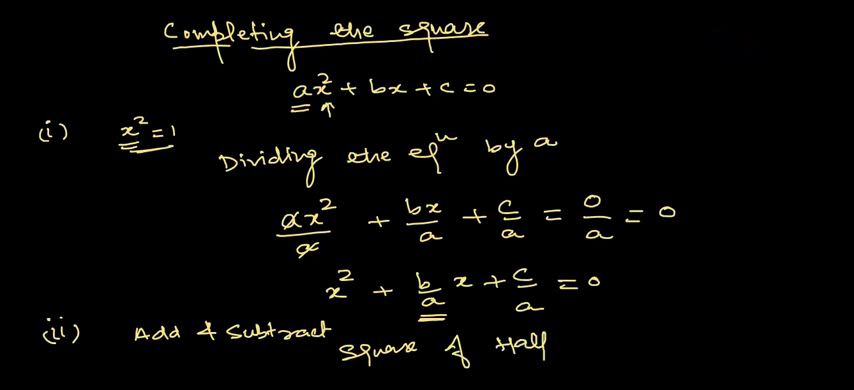 Completing the square
ax² + bx + c = 0
(i) x² = 1
Dividing the eqⁿ by a
ax²/a + bx/a + c/a = 0/a = 0
x² + b/a x + c/a = 0
(ii) Add & Subtract
Square of Half